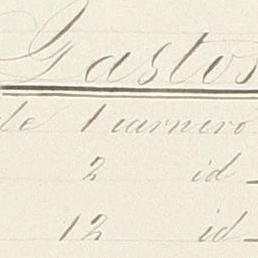 Gastos
de 1 carnero
2 id
12 id